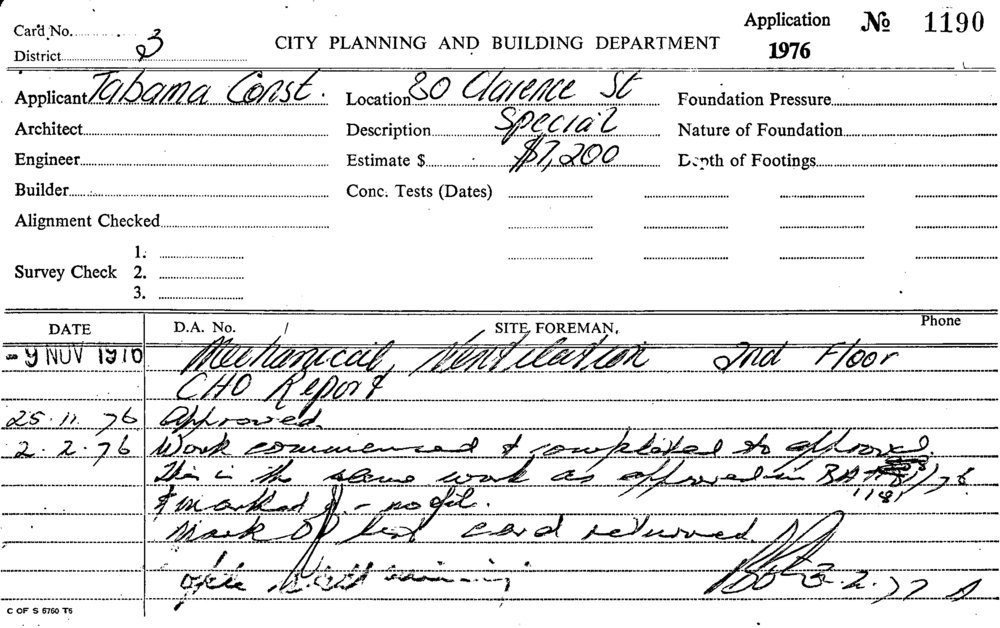 Card No.
District 3
CITY PLANNING AND BUILDING DEPARTMENT
Application No 1190
1976
Applicant Tabama Const. Location 80 Clarence St Foundation Pressure
Architect Description Special Nature of Foundation
Engineer Estimate $ $7,200 Depth of Footings
Builder Conc. Tests (Dates)
Alignment Checked
Survey Check 1.
2.
3.
DATE D.A. No. / SITE FOREMAN, Phone
- 9 NOV 1976 Mechanical Ventilation 2nd Floor
CHO Report
25.11.76 Approved.
2.2.76 Work commenced & completed to approval.
This is the same work as approved in BA 1181/76
& marked - no
Mark Off card returned
3.2.77
C OF S 5750 T6